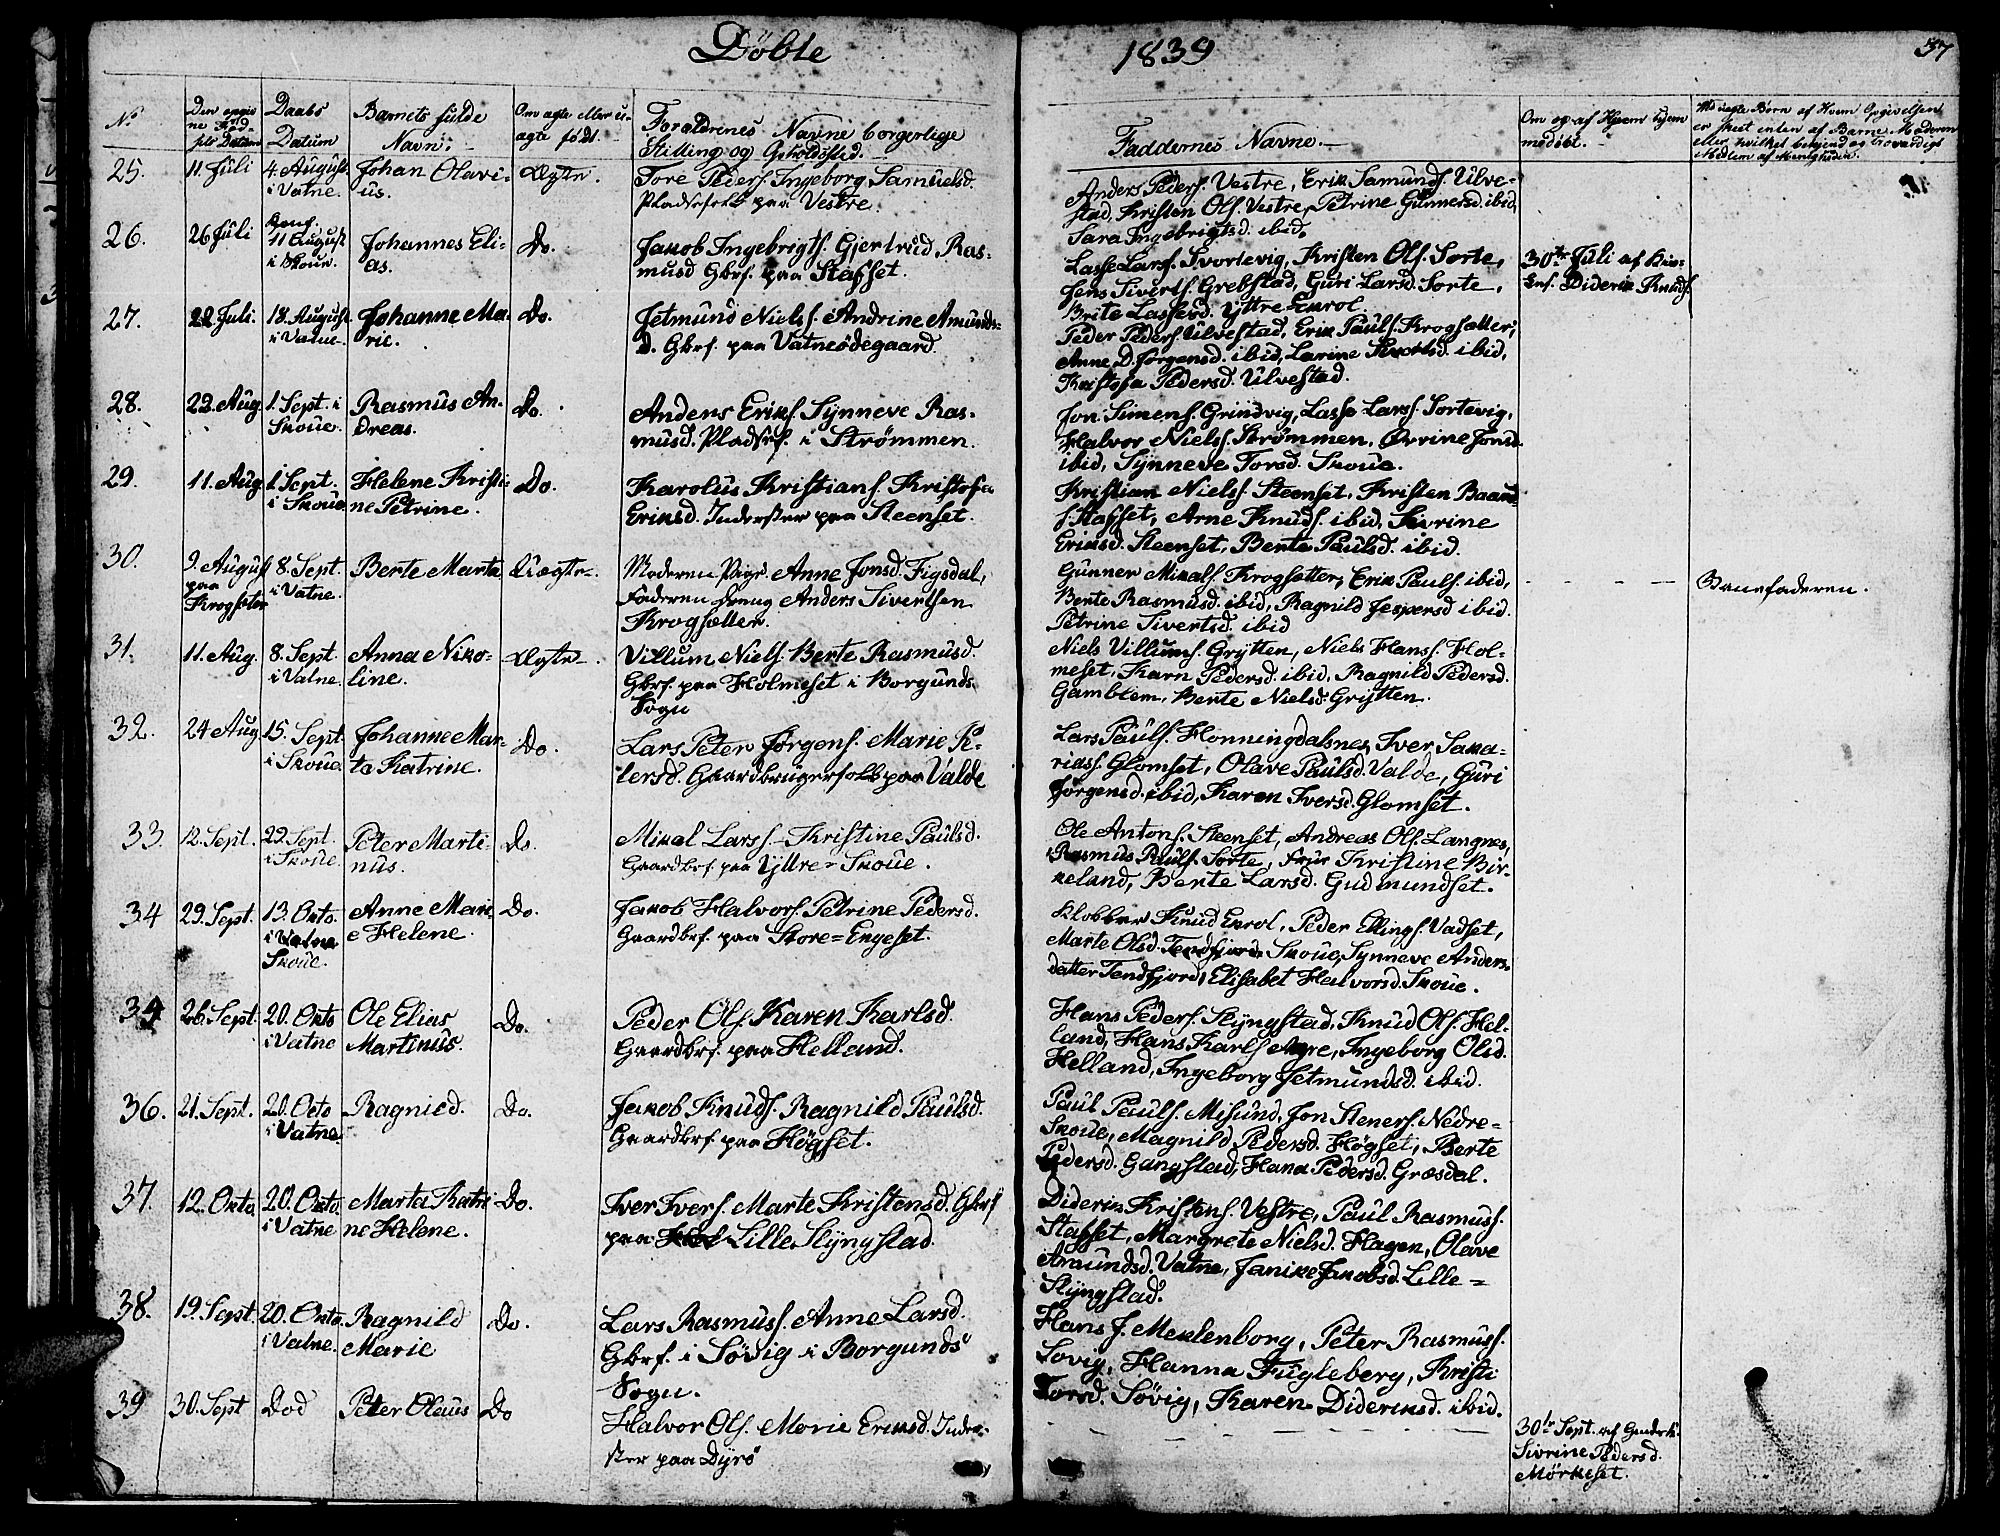 Døbte
1839
37
No
Den opgivne Fødsels Datum
Daabs Datum
Barnets fulde Navn:
Om ægte eller uægte født.
Forældrenes Navne borgerlige Stilling og Opholdssted.
Faddernes Navne.
Om og af Hvem hjemmedøbt.
25. 11 Juli 4. August i Vatne. Johan Olavius. Ægte. Tore Peders. Ingeborg Samuelsd. Pladsfolk paa Vestre.
Anders Peders. Vestre, Erik Samunds. Ulvestad, Kristen Ols. Vestre, Petrine Gunnersd. ibid, Sara Ingebrigtsd. ibid.
26. 26 Juli 11 August i Skoue. Johannes Elias. Do. Jakob Ingebrigts. Gjertrud Rasmusd Gbrf. paa Stafset.
Lasse Lars. Svortevig, Kristen Ols. Sorte, Jens Siverts. Grebstad, Guri Larsd. Sorte, Brite Lassesd. Yttre=Enrol.
30te Juli af Diderik Knuds.
27. 22 Juli. 18. August i Vatne. Johanne Marie. Do. Jetmund Niels. Andrine Amundsd. Gbrf. paa Vatneødegaard.
Peder Peders. Ulvestad, Erik Pauls. Krogsætter, Anne D. Jørgensd. ibid, Larine ibid, Kristofa Pedersd. Ulvestad.
28. 22. Aug. 1. Sept. i Skoue. Rasmus Andreas. Do. Anders Eriks. Synneve Rasmusd. Pladsrf. i Strømmen.
Jon Simens. Grindvig, Lasse Larss. Sortevig, Halvor Nielss. Strømmen, Jonsd. ibid, Synneve Torsd. Skoue.
29. 11. Aug. 1. Sept. i Skoue Helene Kristine Petrine. Do. Karolus Kristians. Kristofa Eriksd. Inderster paa Steenset.
Kristian Niels. Steenset, Kristen Baards. Stafset, Arne Knuds. ibid, Sivrine Eriksd. Steenset, Berte Paulsd. ibid.
30. 9. August paa Krogsæter 8. Sept. i Vatne. Berte Marta Uægte. Moderen Pige Anne Jonsd. Figsdal, Faderen Dreng Anders Sivertsen Krogsætter.
Gunner Mikals. Krogsætter, Erik Pauls. ibid, Berte Rasmusd. ibid, Ragnild Jespersd ibid. Petrine Sivertsd. ibid
Barnefaderen.
31. 11. Aug. 8. Sept. i Vatne. Anna Nikoline. Ægte. Villum Niels. Berte Rasmusd. Gbrf. paa Holmeset i Borgunds Sogn
Niels Villums. Grytten, Niels Hanss. Holmeset, Karn Pedersd. ibid, Ragnild Pedersd. Gamblem, Berte Nielsd. Grytten.
32. 24 Aug 15. Sept. i Skoue. Johanne Marta Katrine. Do. Lars Peter Jørgens. Marie Petersd. Gaardbrugerfolk paa Valde
Lars Pauls. Honningdalsnes, Iver Sakariass. Glomset, Olave Paulsd. Valde, Guri Jørgensd. ibid, Karen Iversd. Glomset.
33 12. Sept. 29. Sept. i Skoue. Peter Martinus. Do. Mikal Larss. Kristine Paulsd. Gaardbrf. paa Yttre=Skoue.
Ole Antons. Steenset, Andreas Ols. Langnes, Rasmus Pauls. Sorte, Frue Kristine Birkeland, Berte Larsd. Gudmundset.
34 29. Sept. 13. Okto. i Vatne Skoue. Anne Marie Helene. Do. Jakob Halvors. Petrine Pedersd. Gaardbrf. paa Store=Engeset.
Klokker Knud Enrol, Peder Ellings. Vadset, Marte Olsd. Tendfjord Skoue, Synneve Andersdatter Tendfjord, Elisabet Halvorsd. Skoue.
34 26. Sept. 20. Okto i Vatne Ole Elias Martinus. Do. Peder Ols. Karen Karlsd. Gaardbrf. paa Helland.
Hans Peders. Slyngstad, Knud Ols. Helland, Hans Karls Agre, Ingeborg Olsd. Helland, Ingeborg Jetmundsd. ibid.
36. 21. Sept. 20. Octo i Vatne. Ragnild. Do. Jakob Knuds. Ragnild Paulsd. Gaardbrf. paa Høgset.
Paul Pauls. Misund, Jon Steners. Nedre-Skoue, Magnild Pedersd. Høgset, Berte Pedersd. Gangstad, Hana Pedersd. Græsdal.
37. 12. Okto 20. Okto. i Vatne Marta Katrine Helene. Do. Iver Ivers. Marte Kristensd. Gbrf paa Lille Slyngstad.
Diderik Kristens. Vestre, Paul Rasmuss. Stafset, Margrete Nielsd. Hagen, Olave Amundsd. Vatne, Janike Jakobsd. Lille=Slyngstad.
38. 19. Sept. 20. Okto. i Vatne. Ragnild Marie Do. Lars Rasmuss. Anne Larsd. Gbrf. i Søvig i Borgunds Sogn.
Hans J. Meklenborg, Peter Rasmuss. Sovig, Hanna Fugleberg, Kristi Torsd. Søvig, Karen Dideriksd. ibid.
39 30. Sept Død Peter Olaus Do Halvor Ols. Marie Eriksd. Inderster paa Dyrø
30te Sept. af Sivrine Pedersd. Mørkeset.